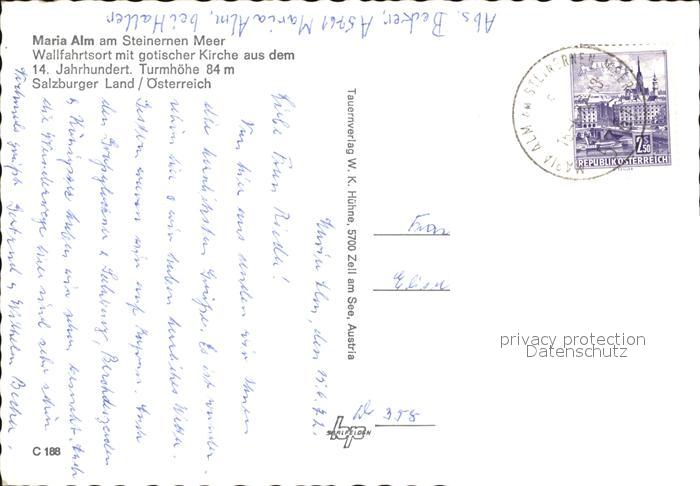 Abs. Becker, A 5761 Maria Alm, bei Haller
Maria Alm am Steinernen Meer
Wallfahrtsort mit gotischer Kirche aus dem
14. Jahrhundert. Turmhöhe 84 m
Salzburger Land / Österreich
Maria Alm, den 15.6.72.
Liebe Frau Rieda!
Von hier aus senden wir Ihnen
die herzlichsten Grüße. Es ist wunder-
schön hier & wir haben herrliches Wetter.
Gestern waren wir auf Kaprun. Auch
den Großglockner & Salzburg, Berchtesgaden
& Königssee haben wir schon besucht. Auch
die Wanderwege hier sind sehr schön
Gertrud & Wilhelm Becker.
C 188
Tauernverlag W. K. Hühne, 5700 Zell am See, Austria
SAALFELDEN
MARIA ALM AM STEINERNEN MEER
2 S 50
REPUBLIK ÖSTERREICH
Frau
Elise
D 358
privacy protection
Datenschutz